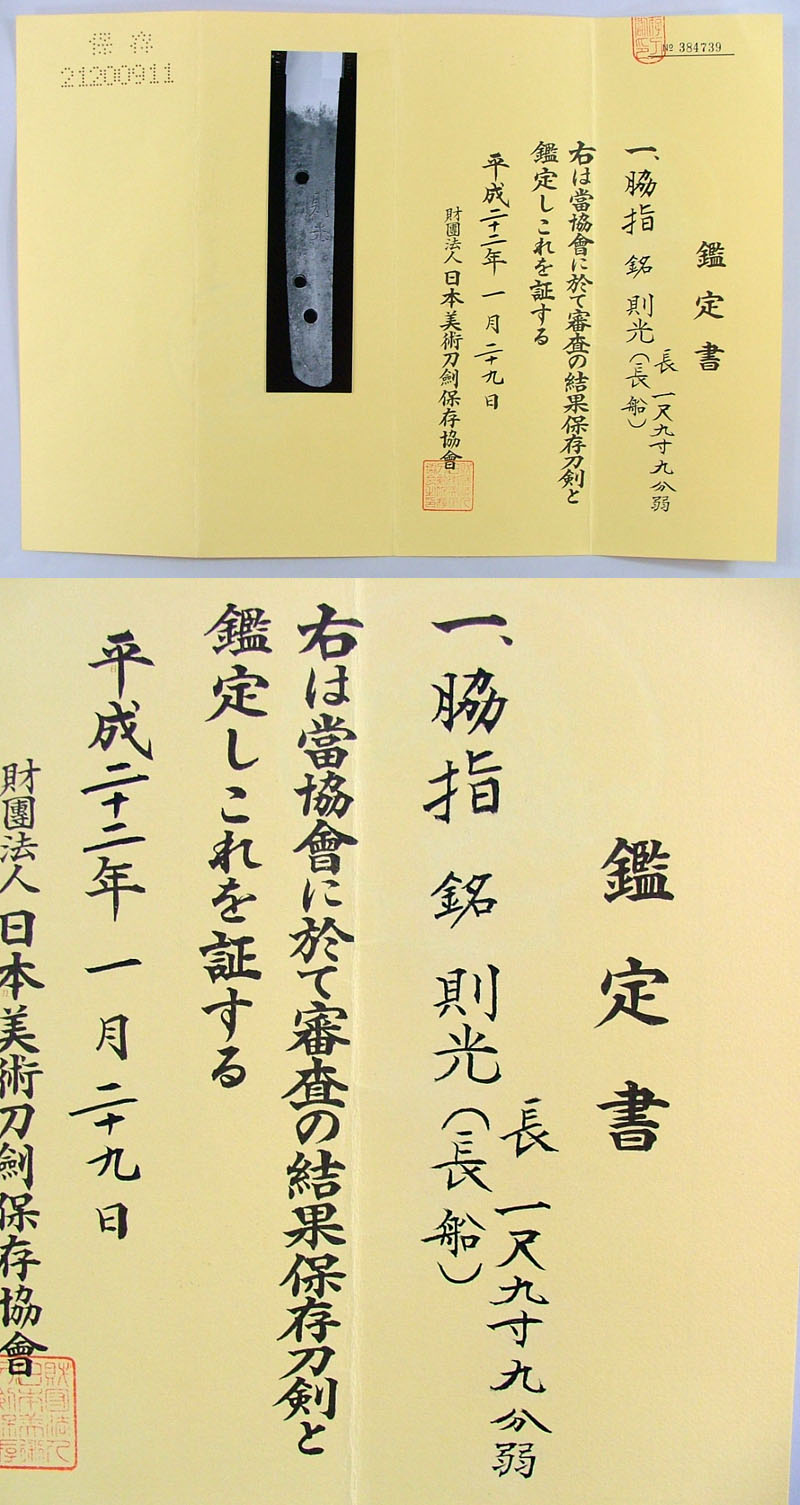 鑑定書
№ 384739
一、脇指 銘 則光(長船)
長 一尺九寸九分弱
右は當協會に於て審査の結果保存刀剣と
鑑定しこれを証する
平成二十二年 一月 二十九日
財團法人 日本美術刀劍保存協會
則光
保存
21200911
鑑定書
一、脇指 銘 則光(長船)
長 一尺九寸九分弱
右は當協會に於て審査の結果保存刀剣と
鑑定しこれを証する
平成二十二年 一月 二十九日
財團法人 日本美術刀劍保存協會